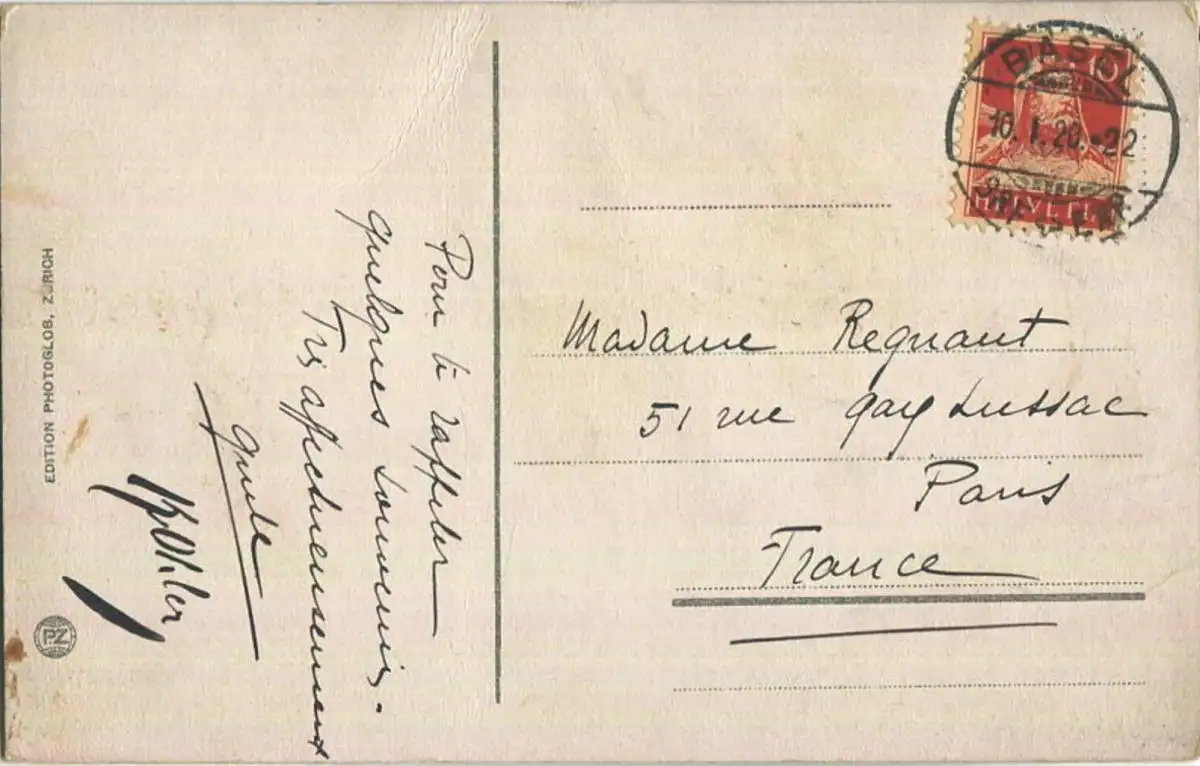 EDITION PHOTOGLOB, ZÜRICH
PZ
Pour te rappeler
quelques souvenirs.
Très affectueusement
BASEL
10. I. 20.-22
10
HELVETIA
Madame Regnant
51 rue Gay Lussac
Paris
France